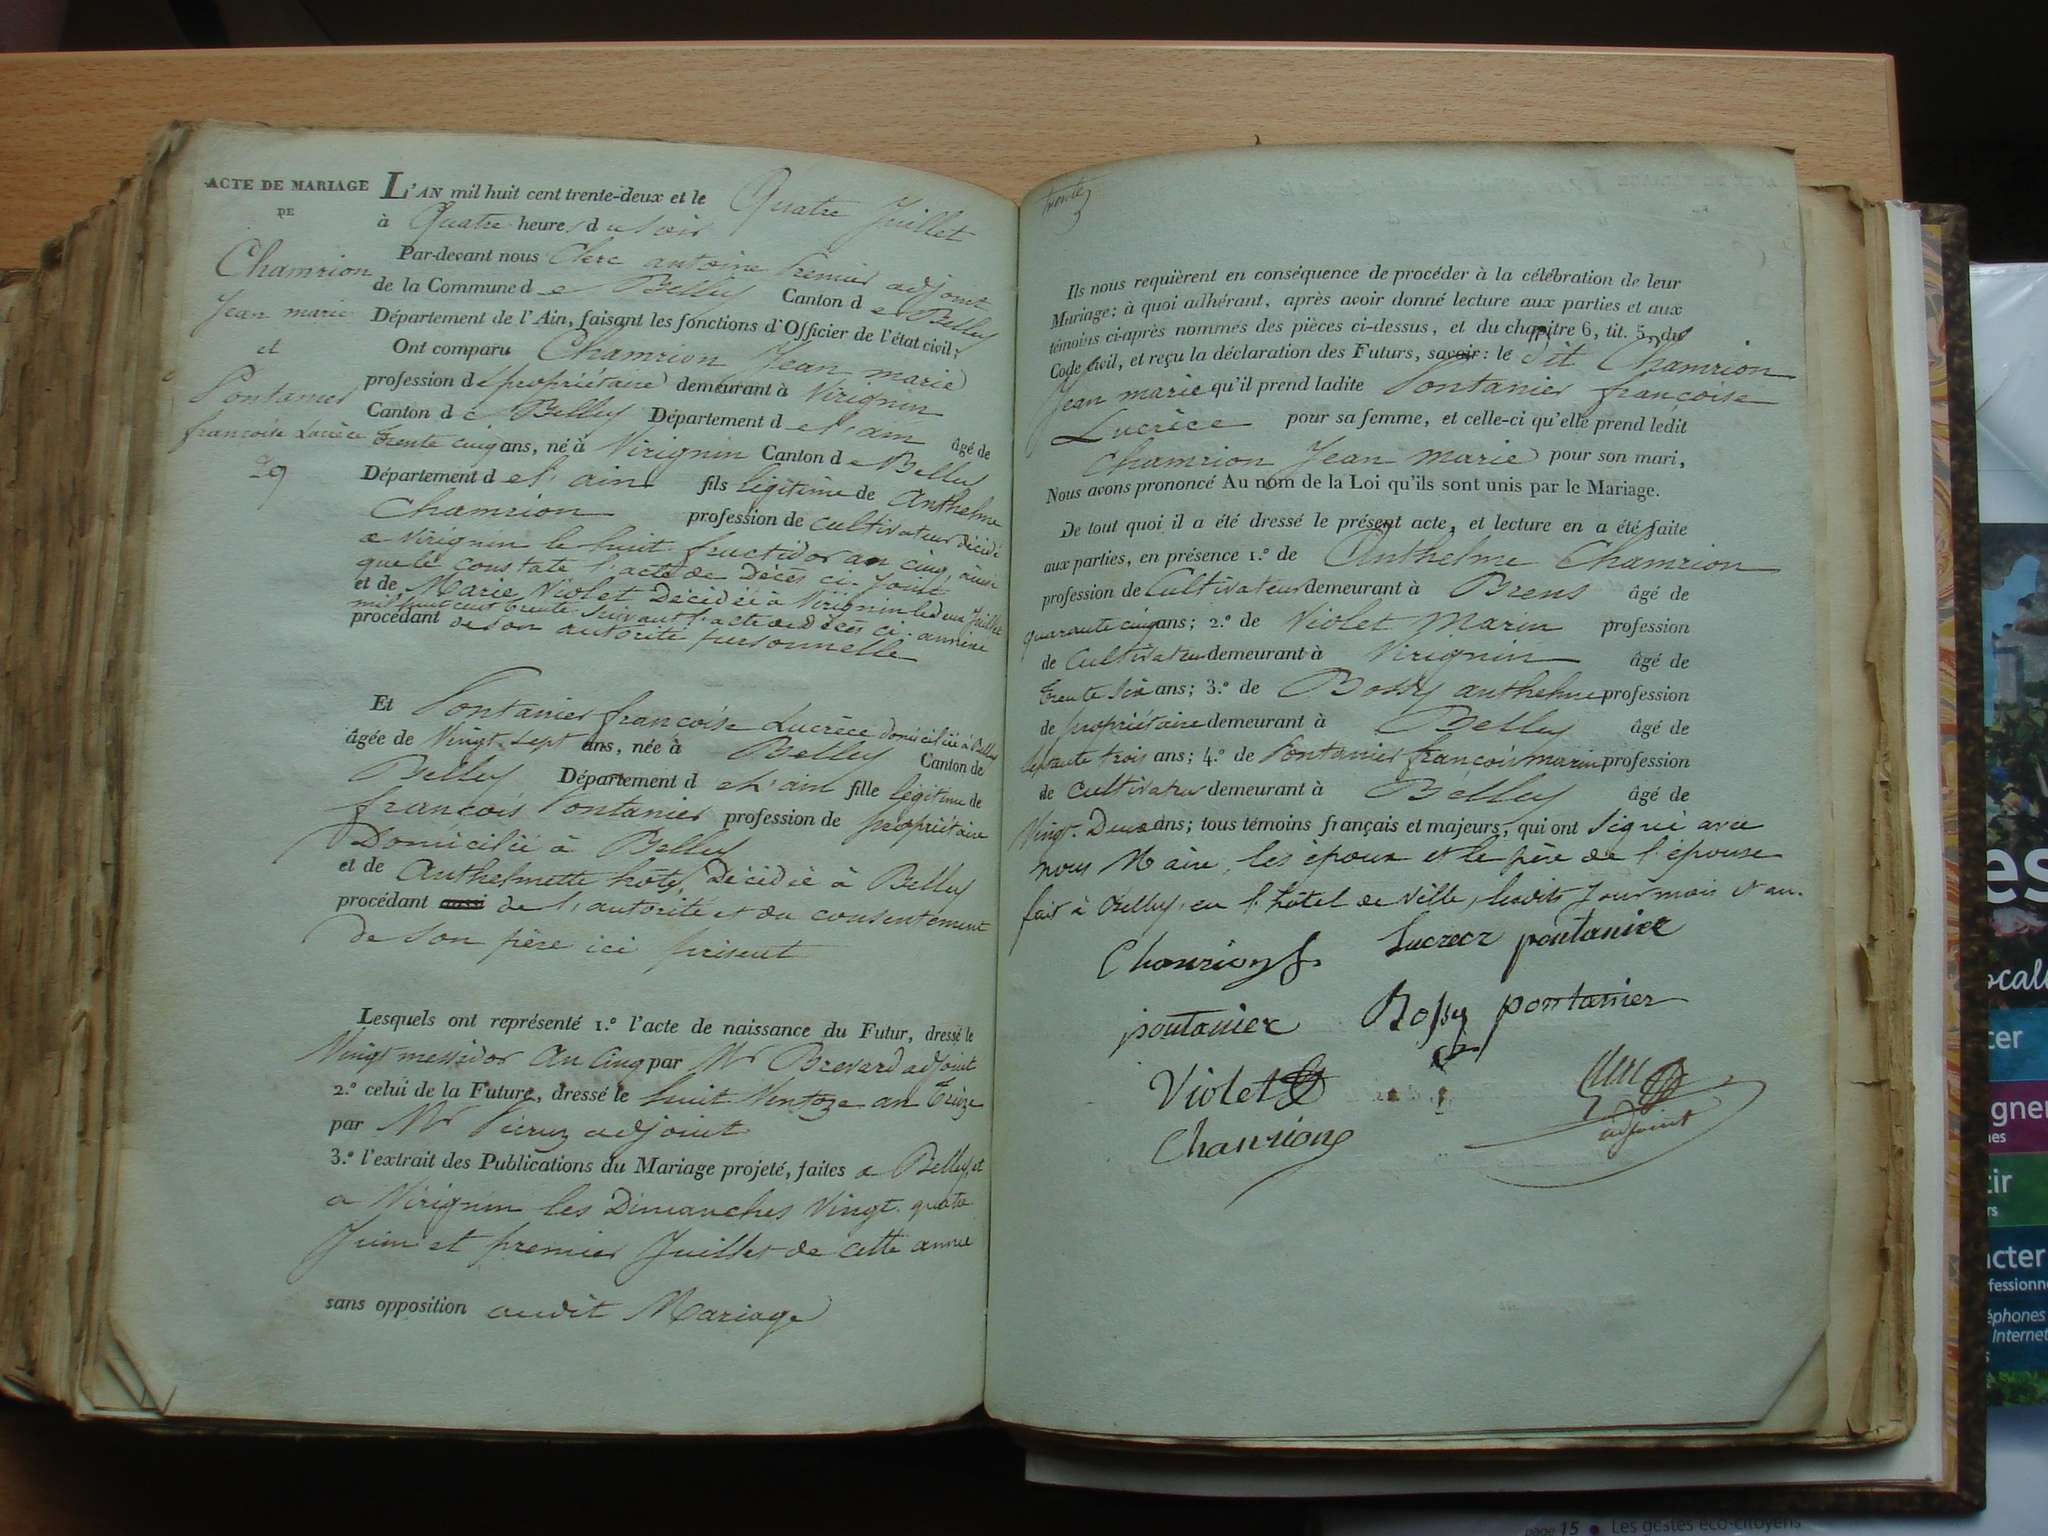 ACTE DE MARIAGE
DE
Chamrion
Jean marie
et
Pontanier
françoise Lucrèce
29
L'AN mil huit cent trente-deux et le Quatre Juillet
à Quatre heures du Soir
Par-devant nous Clerc antoine Premier adjoint
de la Commune de Belley Canton de Belley
Département de l'Ain, faisant les fonctions d'Officier de l'état civil;
Ont comparu Chamrion Jean marie
profession de propriétaire demeurant à Virignin
Canton de Belley Département de l'ain âgé de
trente cinq ans, né à Virignin Canton de Belley
Département de l'ain fils légitime de Anthelme
Chamrion profession de cultivateur décédé
a Virignin le huit fructidor an cinq ainsi
que le constate l'acte de Décès ci-joint
et de Marie Violet Décédée à Virignin le deux Juillet
mil huit cent trente suivant l'acte de Décès ci-annéxé
procédant de son autorité personnelle
Et Pontanier françoise Lucrèce domiciliée à Belley
âgée de Vingt-sept ans, née à Belley Canton de
Belley Département de l'ain fille légitime de
francois Pontanier profession de propriétaire
Domicilié à Belley
et de Anthelmette Décédée à Belley
procédant de l'autorité et du consentement
de son père ici présent
Lesquels ont représenté 1.º l'acte de naissance du Futur, dressé le
Vingt messidor an Cinq par Mr Brevard adjoint
2.º celui de la Future, dressé le huit Ventoze an Treize
par Mr adjoint
3.º l'extrait des Publications du Mariage projeté, faites a Belley et
a Virignin les Dimanches Vingt-quatre
Juin et premier Juillet de cette année
sans opposition audit Mariage
trente
Ils nous requièrent en conséquence de procéder à la célébration de leur
Mariage; à quoi adhérant, après avoir donné lecture aux parties et aux
témoins ci-après nommés des pièces ci-dessus, et du chapitre 6, tit. 5, du
Code civil, et reçu la déclaration des Futurs, savoir: le dit Chamrion
Jean marie qu'il prend ladite Pontanier françoise
Lucrèce pour sa femme, et celle-ci qu'elle prend ledit
Chamrion Jean marie pour son mari,
Nous avons prononcé Au nom de la Loi qu'ils sont unis par le Mariage.
De tout quoi il a été dressé le présent acte, et lecture en a été faite
aux parties, en présence 1.º de Anthelme Chamrion
profession de Cultivateur demeurant à Brens âgé de
quarante cinq ans; 2.º de Violet Marin profession
de Cultivateur demeurant à Virignin âgé de
trente six ans; 3.º de Bossy anthelme profession
de propriétaire demeurant à Belley âgé de
septante trois ans; 4.º de Pontanier françois marin profession
de Cultivateur demeurant à Belley âgé de
Vingt-Deux ans; tous témoins français et majeurs, qui ont signé avec
nous Maire, les époux et le père de l'épouse
fait à Belley, en l'hôtel de Ville, lesdits jour mois et an.
Chanrion Lucrece pontanier
pontanier Bossy pontanier
Violet
Chanrion adjoint
es
ocal
cer
igner
nes
tir
rs
acter
ofessionne
éphones
Internet
page 15 • Les gestes éco-citoyens